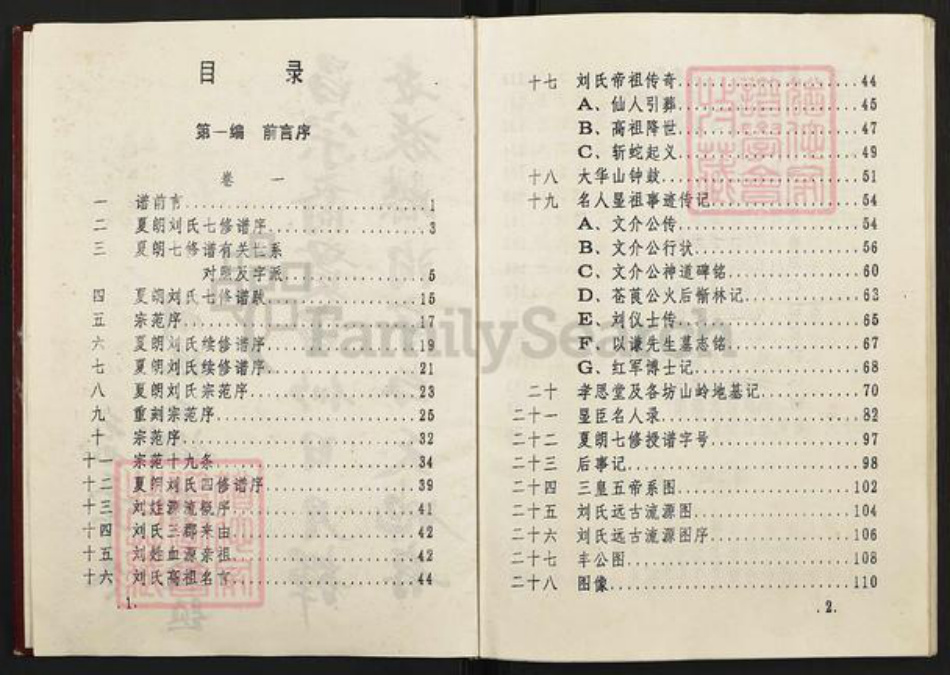 目 录
第一编 前言序
卷 一
一 谱前言 1
二 夏朗刘氏七修谱序 3
三 夏朗七修谱有关世系
对照及字派 5
四 夏朗刘氏七修谱跋 15
五 宗范序 17
六 夏朗刘氏续修谱序 19
七 夏朗刘氏续修谱序 21
八 夏朗刘氏宗范序 23
九 重刻宗范序 25
十 宗范序 32
十一 宗范十九条 34
十二 夏朗刘氏四修谱序 39
十三 刘姓源流概序 41
十四 刘氏三郡来由 42
十五 刘姓血源亲祖 42
十六 刘氏高祖名言 44
.1.
十七 刘氏帝祖传奇 44
A、仙人引葬 45
B、高祖降世 47
C、斩蛇起义 49
十八 大华山钟鼓 51
十九 名人显祖事迹传记 54
A、文介公传 54
B、文介公行状 56
C、文介公神道碑铭 60
D、苍莨公火后惭林记 63
E、刘仪士传 65
F、以谦先生墓志铭 67
G、红军博士记 68
二十 孝恩堂及各坊山岭地基记 70
二十一 显臣名人录 82
二十二 夏朗七修授谱字号 97
二十三 后事记 98
二十四 三皇五帝系图 102
二十五 刘氏远古流源图 104
二十六 刘氏远古流源图序 106
二十七 丰公图 108
二十八 图像 110
.2.
FamilySearch